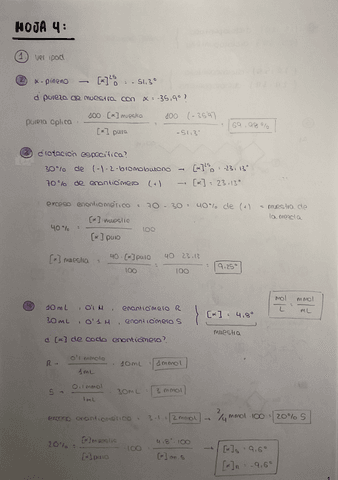 HOJA 4:
① ver ipad.
② α-pineno → [α]²⁵D = -51.3°
d pureza de muestra con α = -35.9°?
pureza óptica = 100 [α] muestra / [α] pura = 100 · (-35.9) / -51.3 =
③ d rotación específica?
30% de (-)-2-bromobutano → [α]²⁵D = -23.13°
70% de enantiómero (+) → [α] = 23.13°
exceso enantiomérico = 70 - 30 = 40% de (+) ← muestra de la mezcla
40% = [α] muestra / [α] puro · 100
[α] muestra = 40 [α] puro / 100 = 40 · 23.13 / 100 = 9.25°
10 mL, 0'1 M, enantiómero R
30 mL, 0'1 M, enantiómero S
[α] = 4.8°
muestra
mol / L = mmol / mL
d [α] de cada enantiómero?
R = 0'1 mmol / 1mL · 10mL = 1 mmol
S = 0.1 mmol / 1mL · 30mL = 3 mmol
exceso enantiomérico = 3 - 1 = 2 mmol →
20% = [α] muestra / [α] puro · 100
4.8° · 100
[α]S = 9.6°
[α]R = -9.6°